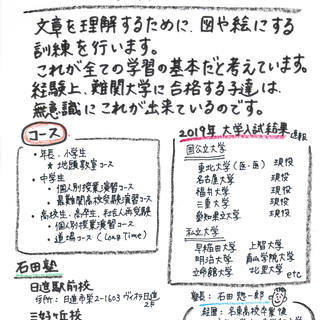 文章を理解するために、図や絵にする
訓練を行います。
これが全ての学習の基本だと考えています。
経験上、難関大学に合格する子達は、
無意識にこれが出来ているのです。
コース
・年長、小学生
★地頭教室コース
・中学生
・個人別授業演習コース
・最難関高校受験演習コース
・高校生、高卒生、社会人再受験
・個人別授業演習コース
・道場コース (Long Time)
2019年 大学入試結果 速報
国公立大学
東北大学(医・医) 現役
名古屋大学 現役
福井大学 現役
三重大学 現役
愛知県立大学 現役
私立大学
早稲田大学 上智大学
明治大学 青山学院大学
立命館大学 北里大学 etc
石田塾
日進駅前校
住所: 日進市栄2-1603 ヴィオラ日進
2F
三好ヶ丘校
塾長: 石田 悠一郎
経歴: 名東高校卒業後